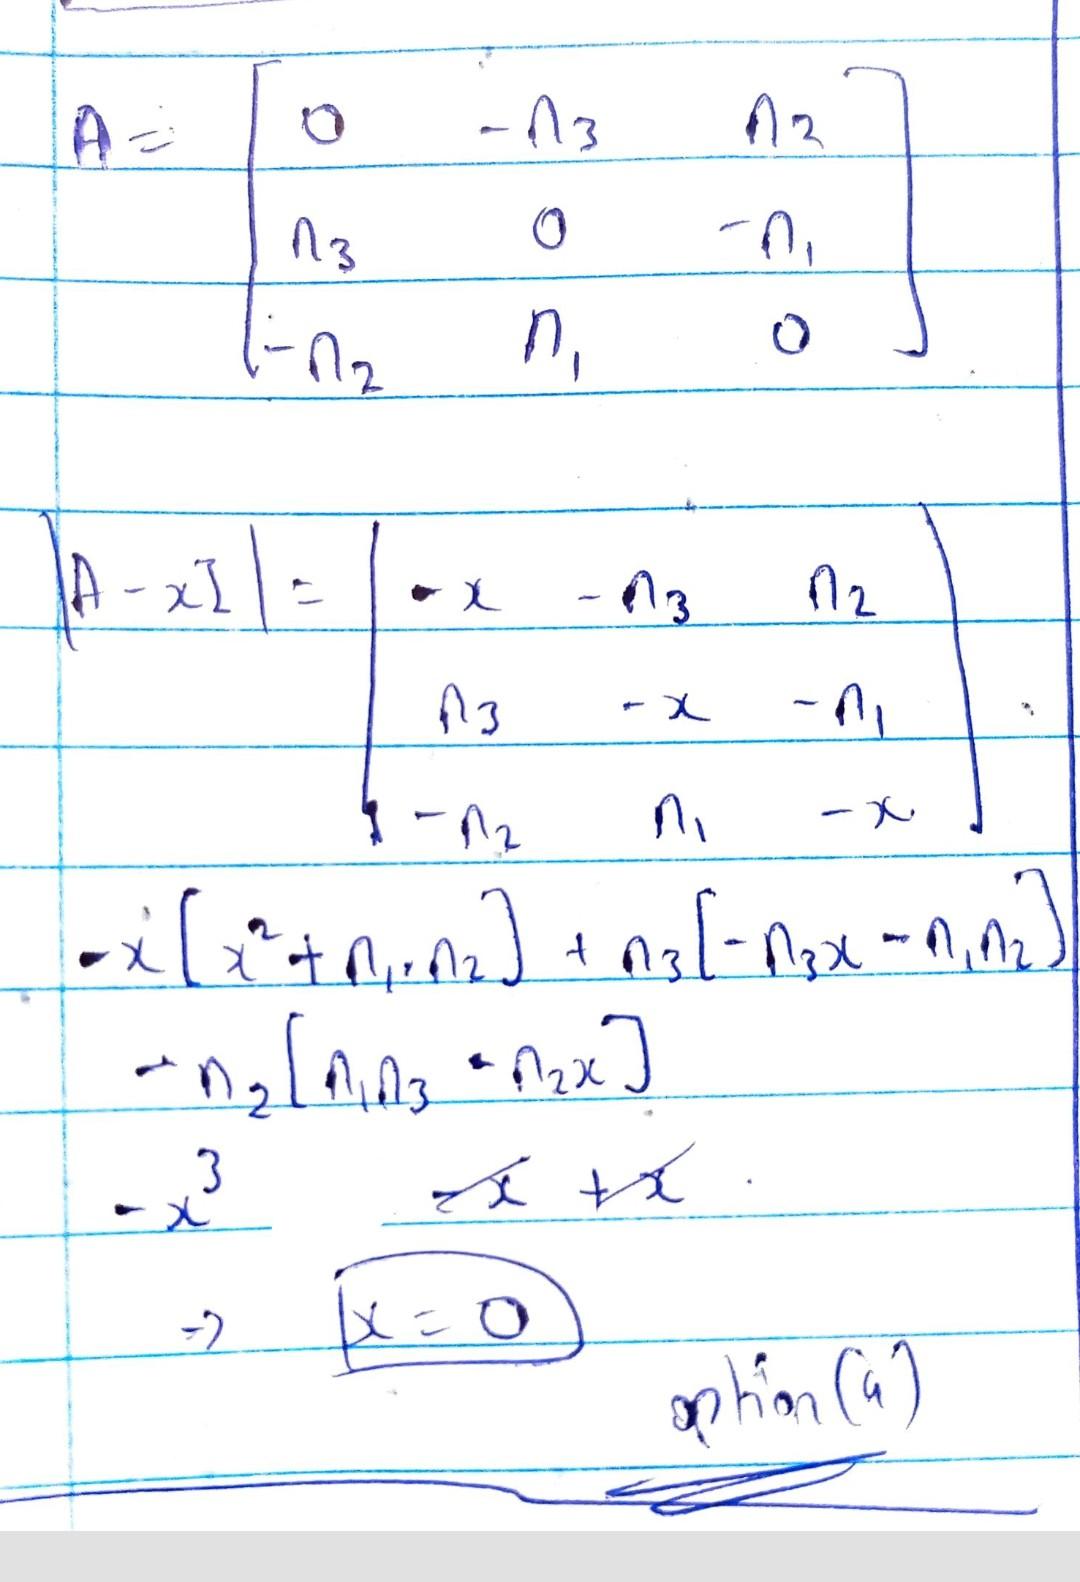 A = [ 0 -n3 n2
n3 0 -n1
-n2 n1 0 ]
|A - xI| = | -x -n3 n2
n3 -x -n1
-n2 n1 -x |
-x[x² + n1·n2] + n3[-n3x - n1n2]
- n2[n1n3 - n2x]
-x³ -x + x
→ x = 0
option (a)